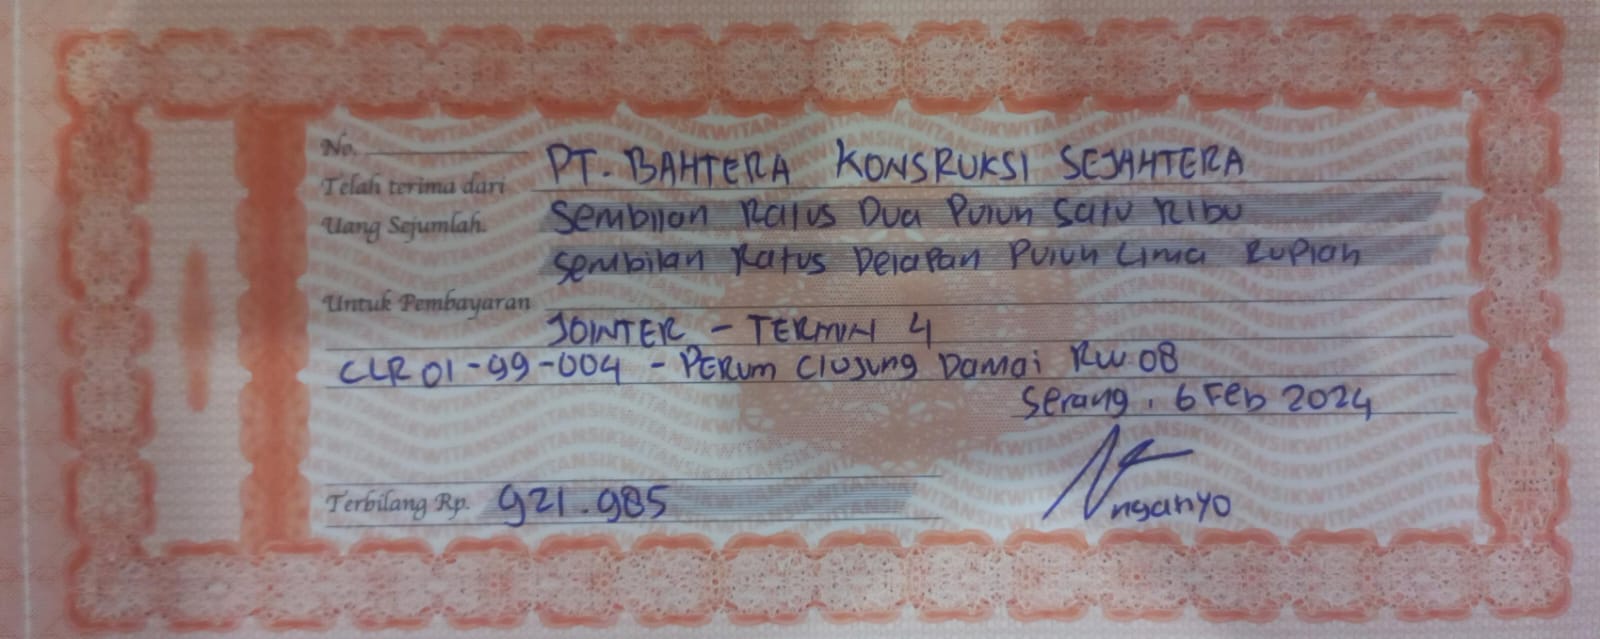 No.
Telah terima dari PT. BAHTERA KONSRUKSI SEJAHTERA
Uang Sejumlah. Sembilan Ratus Dua Puluh Satu Ribu
Sembilan Ratus Delapan Puluh Lima Rupiah
Untuk Pembayaran
JOINTER - TERMIN 4
CLR 01-99-004 - PERUM Ciujung Damai RW 08
Serang, 6 Feb 2024
Terbilang Rp. 921.985
nganyo